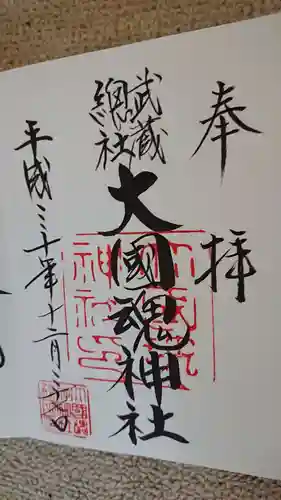 奉拝
武蔵
總社
大國魂神社
平成三十年十一月三日